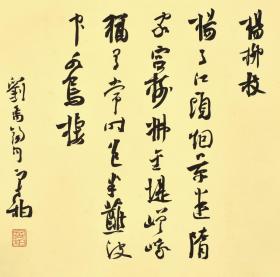 楊柳枝
楊子江頭烟景迷隋
家宮樹拂金堤嵯峨
猶有當時色半蘸波
中水鳥棲
劉禹錫句